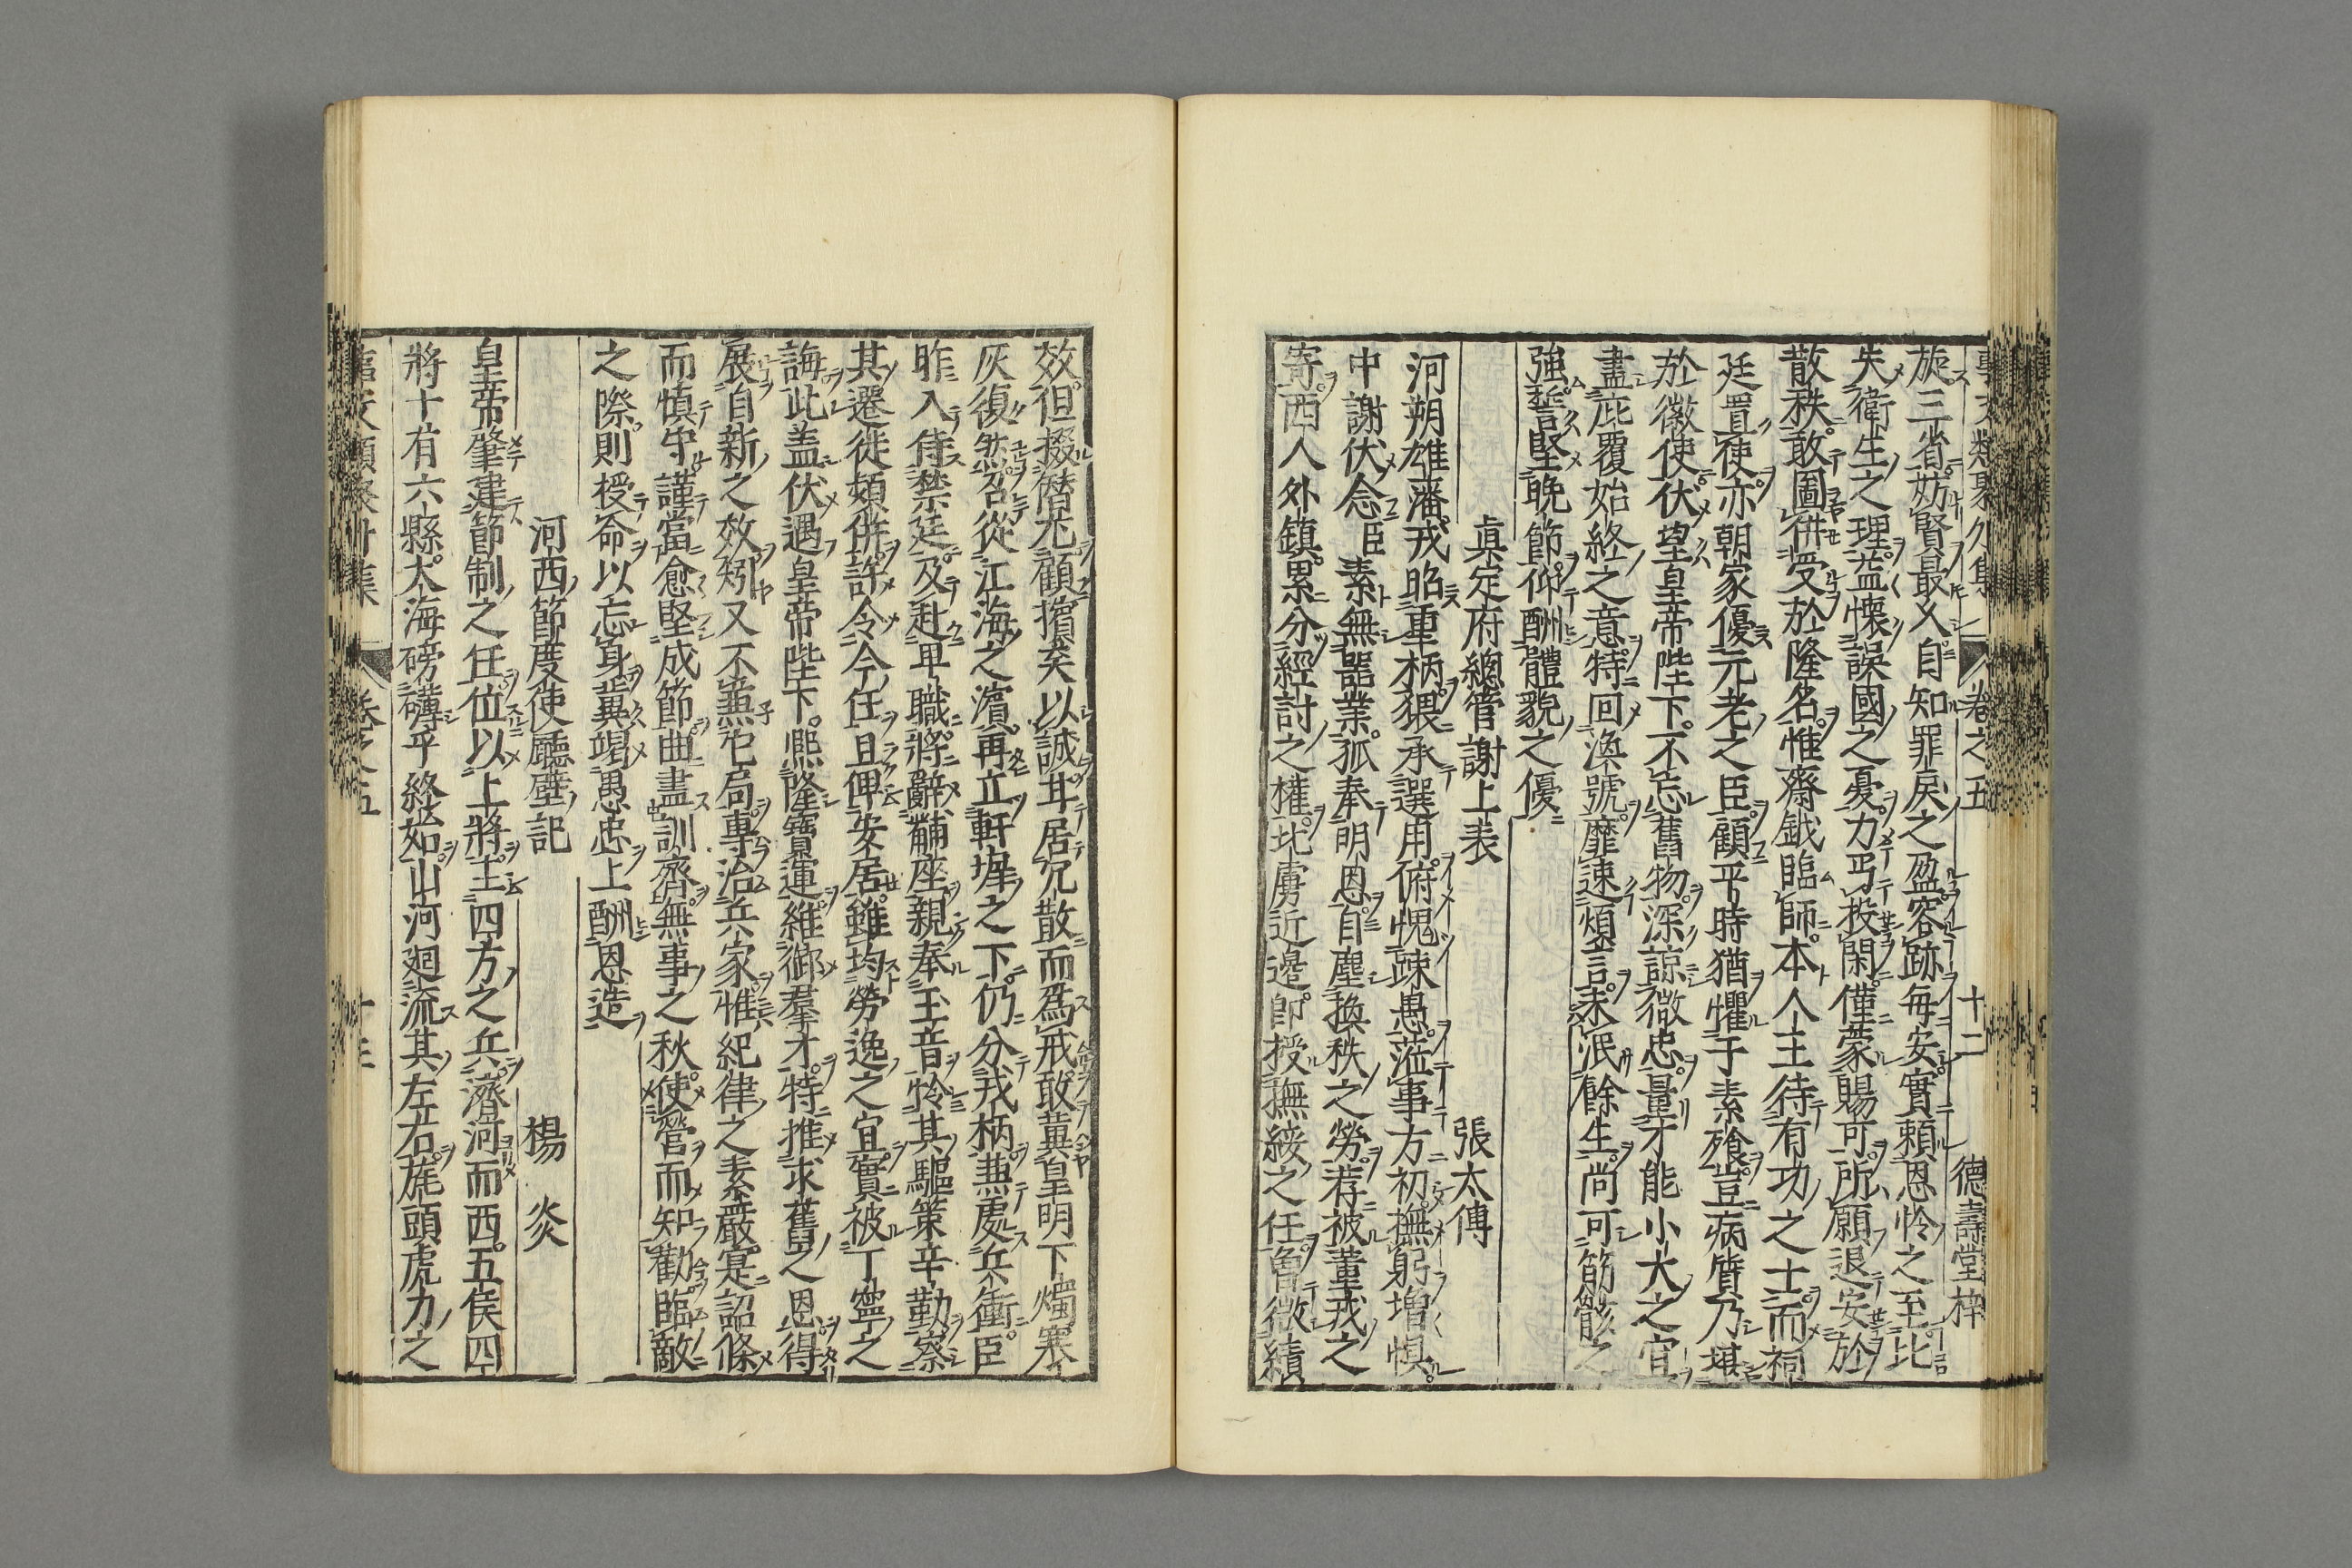 事文類聚外集 卷之五 十二 德壽堂梓
旋三省妨賢最久自知罪戾之盈容跡每安實賴恩怜之至比
失衛生之理盖懷誤國之憂力丐投閑僅蒙賜可所願退安於
散秩敢圖併受於隆名惟齋鉞臨師本人主待有功之士而祠
廷置使亦朝家優元老之臣顧平時猶懼于素飱豈病質乃堪
於徽使伏望皇帝陛下不忘舊物深諒微忠量才能小大之宜
盡庇覆始終之意特回渙號靡速煩言未泯餘生尚可筋骸之
強誓堅晚節仰酬體貌之優
真定府總管謝上表 張太傅
河朔雄藩戎昭重柄猥承選用俯愧踈愚蒞事方初撫躬增惧
中謝伏念臣素無噐業孤奉明恩自塵換秩之勞荐被董戎之
寄西人外鎮累分經討之權北虜近邊卽授撫綏之任會微績
效但掇朁尤顧擯矣以誠甘居冗散而爲戒敢冀皇明下燭寒
灰復然召從江海之濱再立軒墀之下仍分戎柄兼處兵衝臣
昨入侍禁廷及赴甲職將辭黼座親奉玉音怜其驅策辛勤察
其遷徙頻併許令今任且俾安居雖均勞逸之宜實被丁寧之
誨此盖伏遇皇帝陛下熈隆寶運維御羣才特推求舊之恩得
展自新之效矧又不兼它局專治兵家惟紀律之素嚴寔詔條
而慎守謹當愈堅成節曲盡訓齊無事之秋使營而知勸臨敵
之際則授命以忘身冀竭愚忠上酬恩造
河西節度使廳壁記 楊炎
皇帝肇建節制之任位以上將主四方之兵濟河而西五侯四
將十有六縣大海磅礴乎終始山河迴流其左右旄頭虎力之
事文類聚外集 卷之五 十三